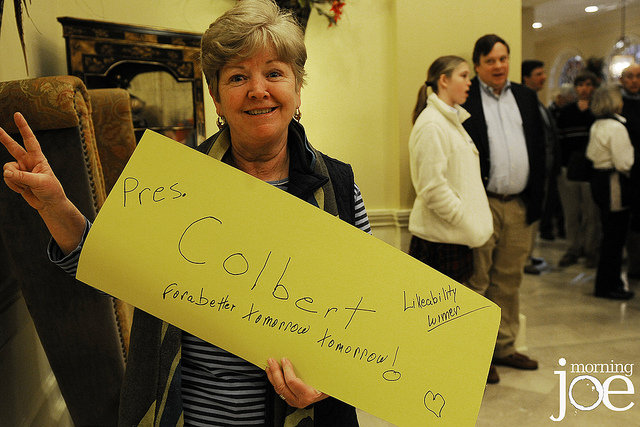 Pres.
Colbert
For a better tomorrow tomorrow!
Likeability
winner
morning
joe